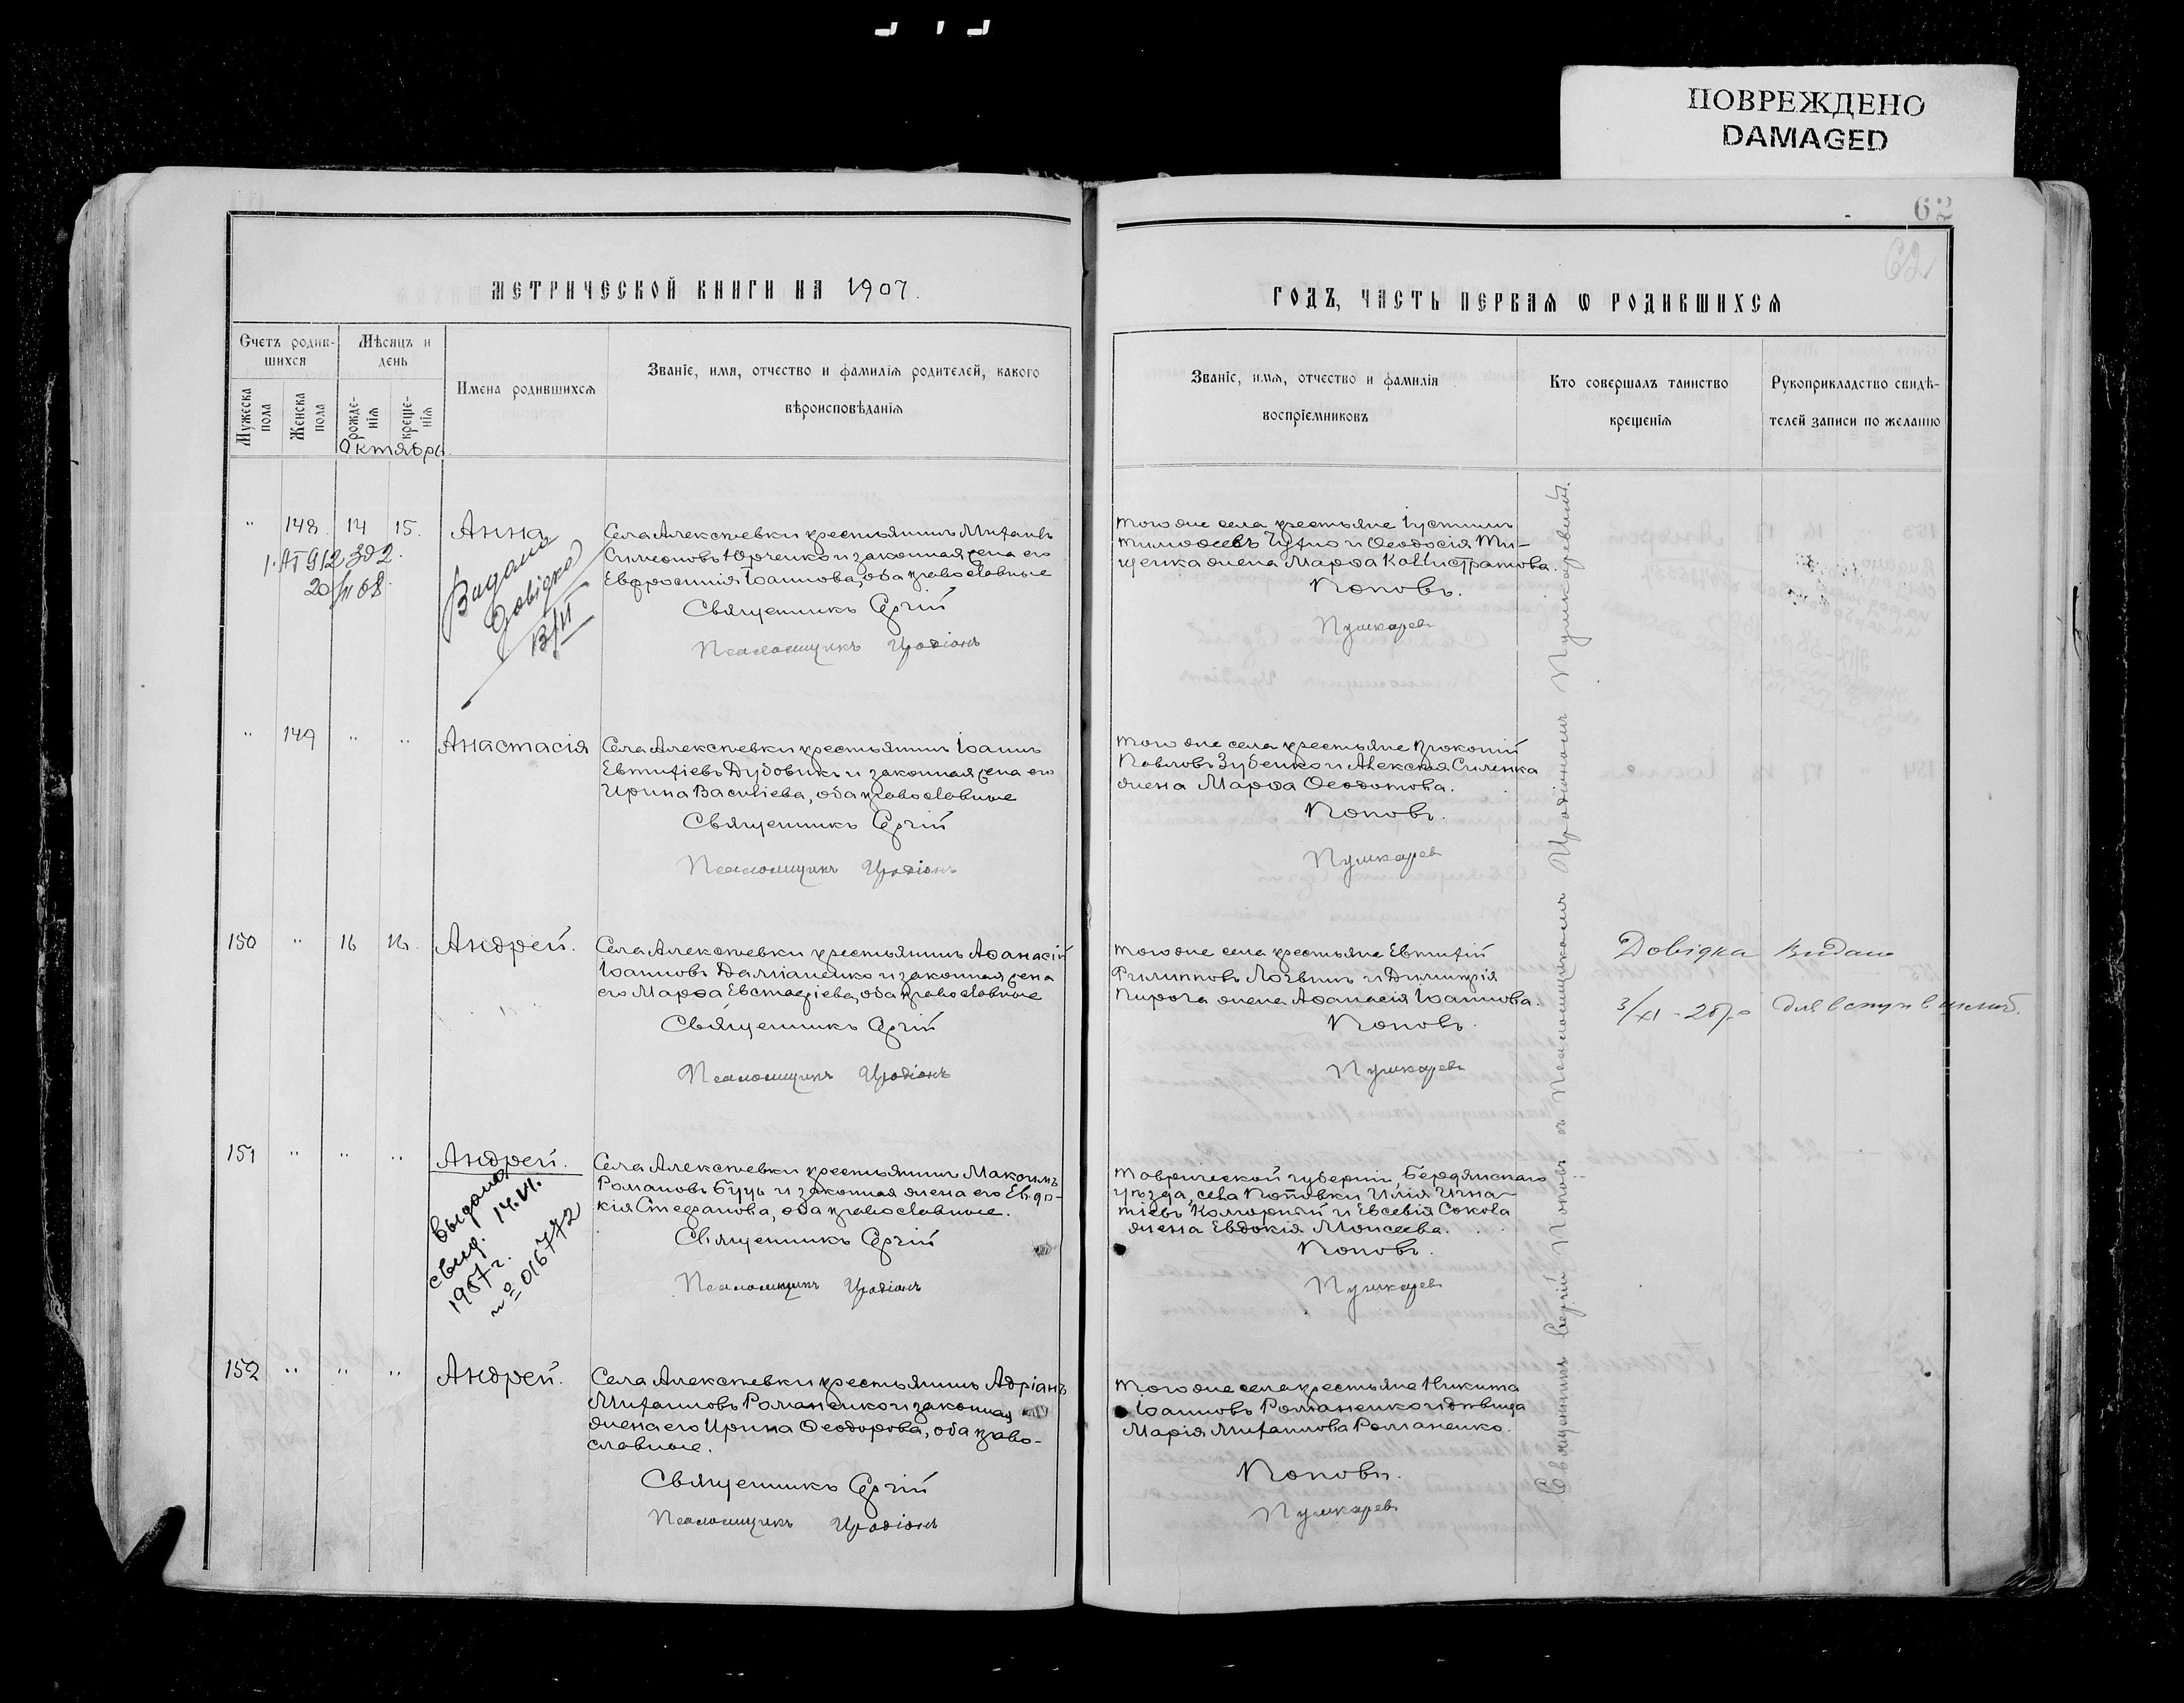 ПОВРЕЖДЕНО
DAMAGED
62
62
МЕТРИЧЕСКОЙ КНИГИ НА 1907.
ГОДЪ, ЧАСТЬ ПЕРВАЯ Ѡ РОДИВШИХСЯ
Счетъ родив-
шихся
Мѣсяцъ и
день
Мужеска
пола
Женска
пола
рожде-
нія
креще-
нія
Имена родившихся
Званіе, имя, отчество и фамилія родителей, какого
вѣроисповѣданія
Званіе, имя, отчество и фамилія
воспріемниковъ
Кто совершалъ таинство
крещенія
Рукоприкладство свидѣ-
телей записи по желанію
Октябрь.
" 148 14 15. Анна
Видана
Довідка
Села Алексѣевки крестьянинъ Михаилъ
Симеоновъ Юрченко и законная жена его
Евфросинія Іоаннова, оба православные
Священникъ Сергій
Псаломщикъ Иродіонъ
того же села крестьяне Іустинъ
Тимофеевъ и Ѳеодосія Ти-
щенка жена Марѳа Каллистратова.
Поповъ.
Пушкаревъ
" 149 " " Анастасія
Села Алексѣевки крестьянинъ Іоаннъ
Евтихіевъ Дубовикъ и законная жена его
Ирина Василіева, оба православные
Священникъ Сергій
Псаломщикъ Иродіонъ
того же села крестьяне Прокопій
Павловъ Зубенко и Алексѣя Силенка
жена Марѳа Ѳеодотова.
Поповъ.
Пушкаревъ
150 " 16 16. Андрей.
Села Алексѣевки крестьянинъ Аѳанасій
Іоанновъ Даміаненко и законная жена
его Марѳа Евстафіева, оба православные
Священникъ Сергій
Псаломщикъ Иродіонъ
того же села крестьяне Евтихій
Филипповъ Логвинъ и Димитрія
Пирога жена Аѳанасія Іоаннова.
Поповъ.
Пушкаревъ
Довідка Видана
3/XI - 28 р.
151 " " " Андрей.
Выдано
свид. 14.VI.
1957 г.
№ 016772
Села Алексѣевки крестьянинъ Максимъ
Романовъ Буць и законная жена его Евдо-
кія Стефанова, оба православные.
Священникъ Сергій
Псаломщикъ Иродіонъ
Таврической губерніи, Бердянскаго
уѣзда, села Поповки Илія Игна-
тіевъ и Евсевія Сокола
жена Евдокія Моисеева.
Поповъ.
Пушкаревъ
152 " " " Андрей.
Села Алексѣевки крестьянинъ Адріанъ
Михаиловъ Романенко и законная
жена его Ирина Ѳеодорова, оба право-
славные.
Священникъ Сергій
Псаломщикъ Иродіонъ
того же села крестьяне Никита
Іоанновъ Романенко и дѣвица
Марія Михаилова Романенко.
Поповъ.
Пушкаревъ
Священникъ Сергій Поповъ съ Псаломщикомъ Иродіономъ Пушкаревымъ.